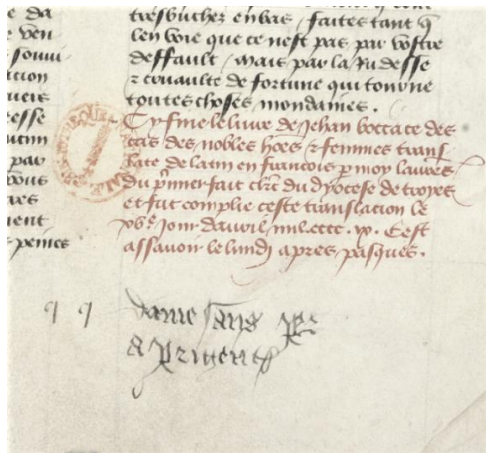 e da
ven
souui
acion
esse
par
vous
ient
s peines
tresbuchez enbas / faites tant q̃
len voie que ce nest pas par vostre
deffault / mais par la rudesse
⁊ de fortune qui tourne
toutes choses mondaines .
Cy fine le liure de Jehan boccace des
cas des nobles hões ⁊ femmes trans
late de latin en francois p moy laurẽs
du p̃mierfait clerc du dyocese de troyes
et fut complie ceste translacion le
xvᵉ iour dauril mil cccc . ix . Cest
assauoir le lundi apres pasques .
dame sans per